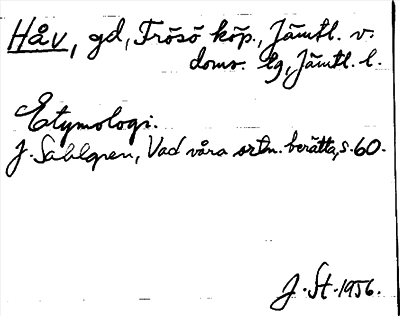 Håv, gd, Frösö köp., Jämtl. v.
doms. tg, Jämtl. l.
Etymologi.
J. Sahlgren, Vad våra ortn. berätta, s. 60.
J. St. 1956.